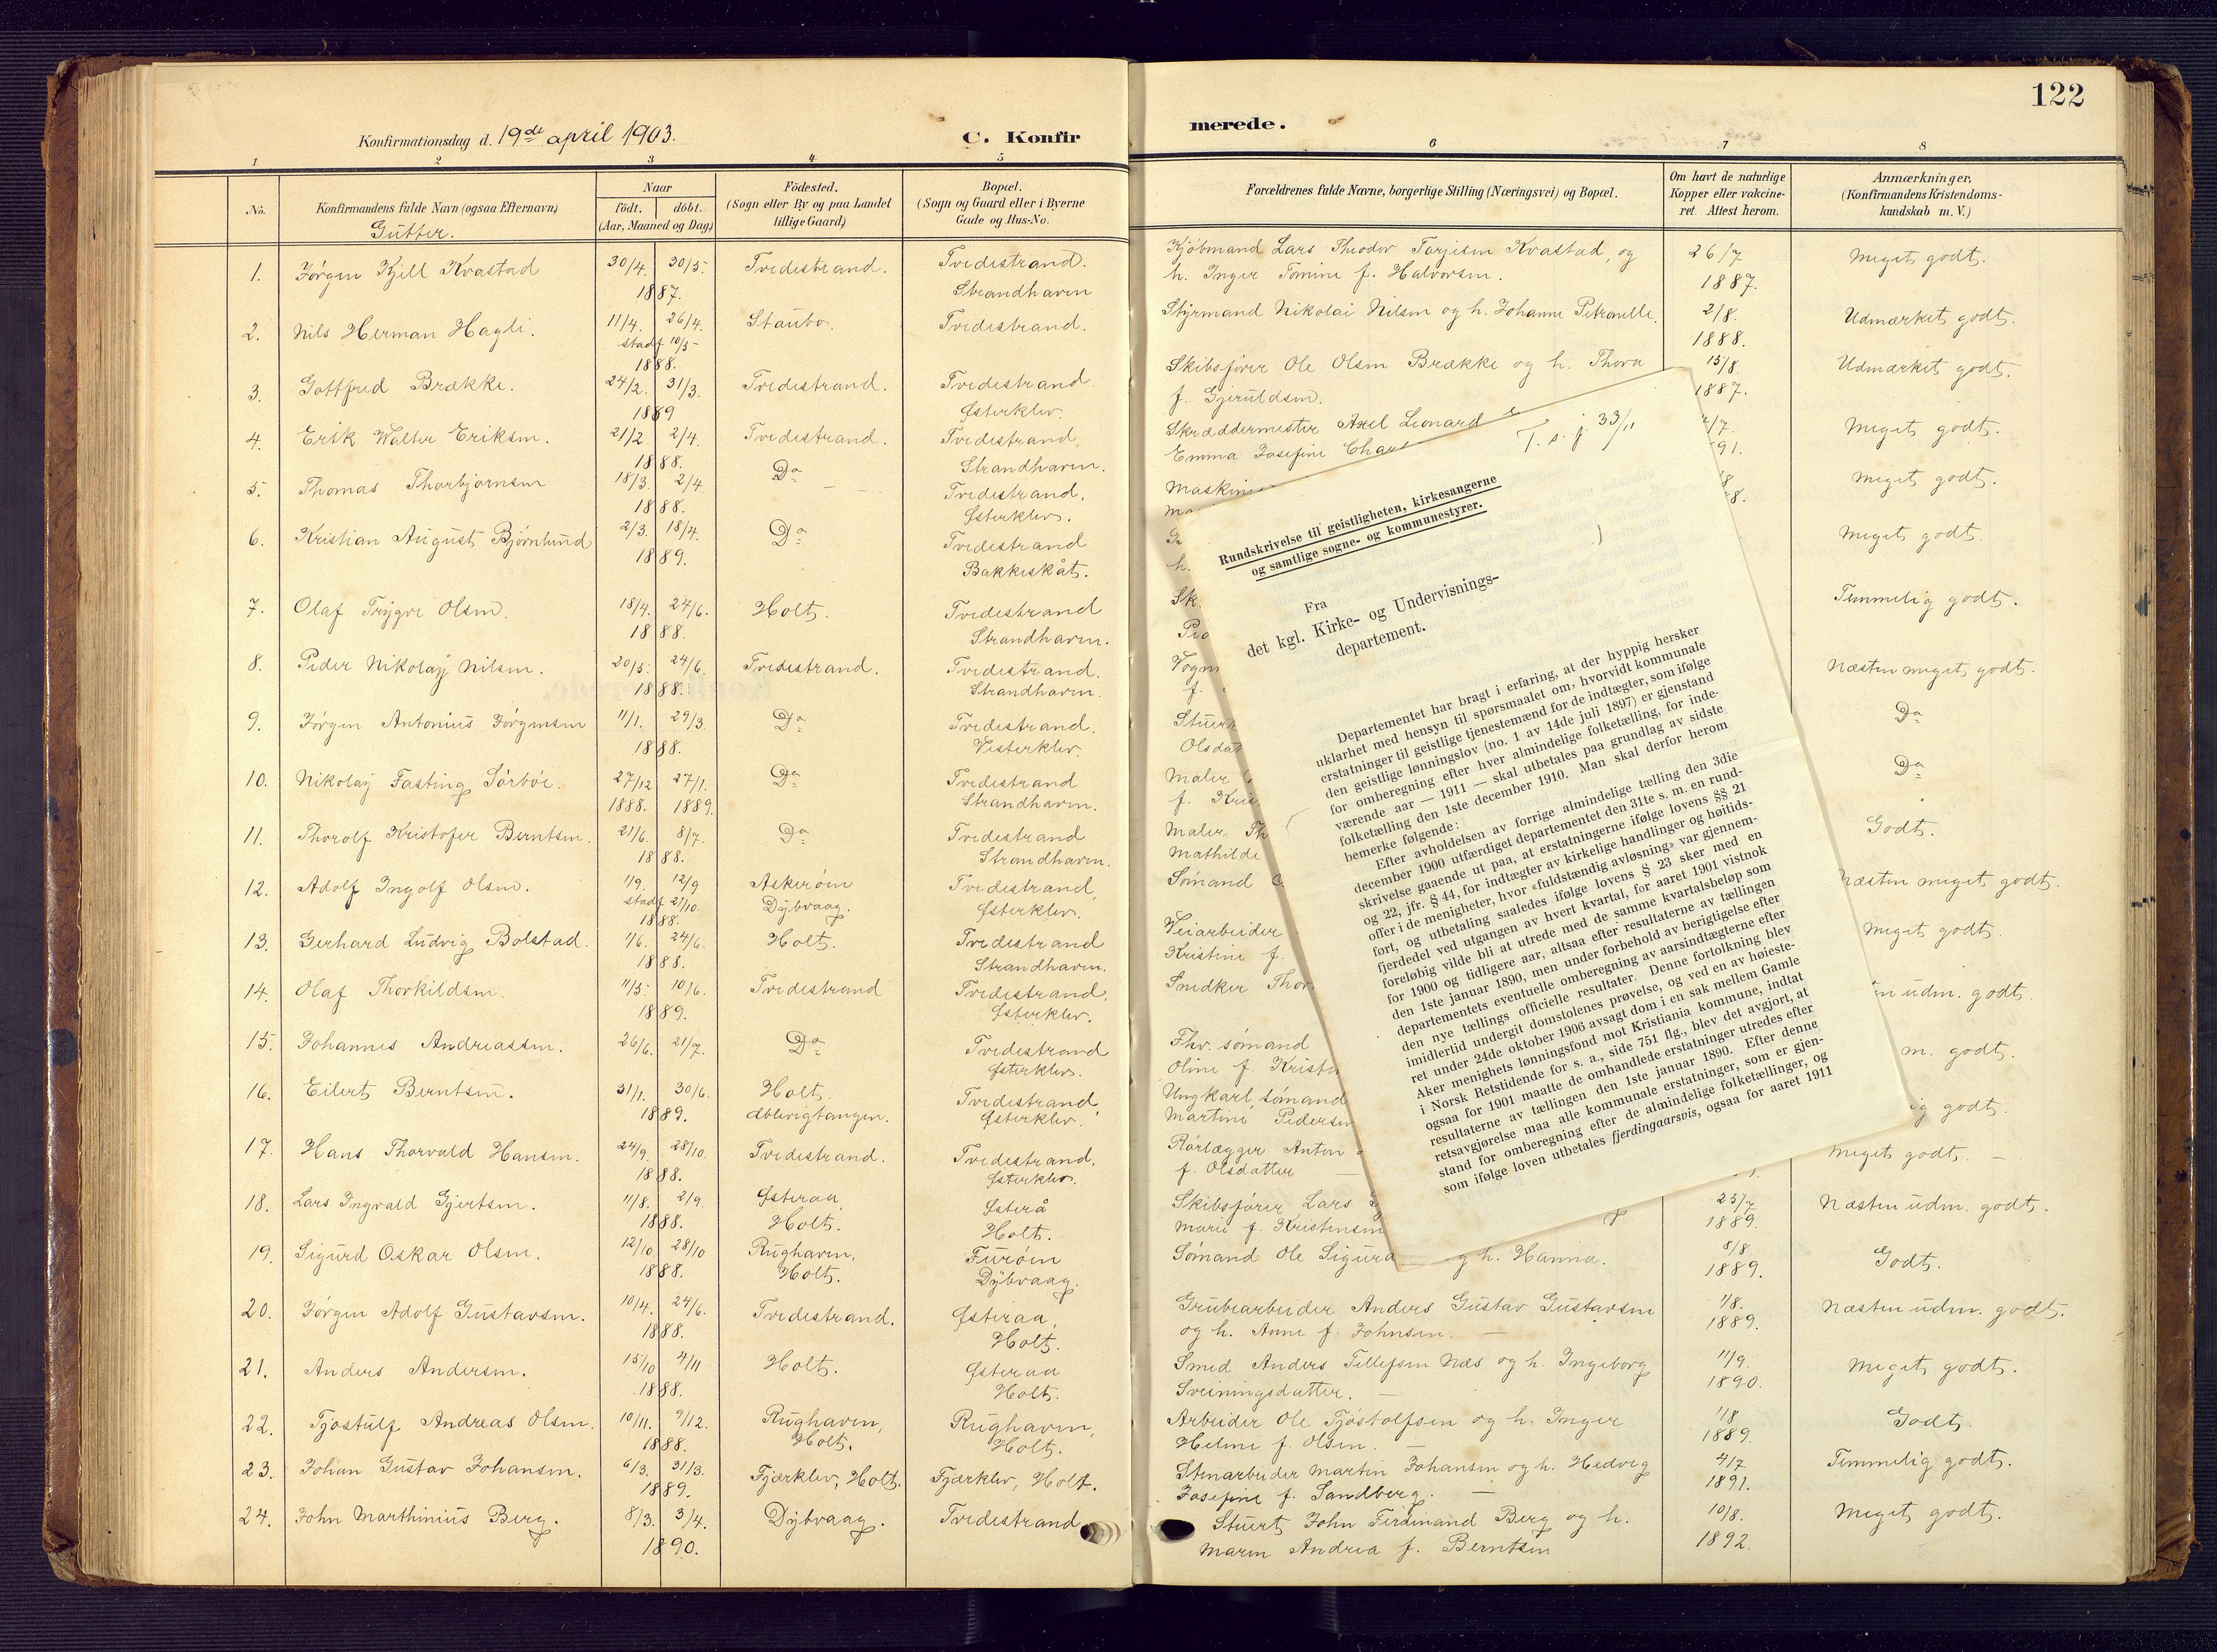 122
Konfirmationsdag d. 19de april 1903.
C. Konfirmerede.
1 2 3 4 5 6 7 8
No.
Konfirmandens fulde Navn (ogsaa Efternavn)
Gutter.
Naar
födt. döbt.
(Aar, Maaned og Dag)
Födested.
(Sogn eller By og paa Landet
tillige Gaard)
Bopæl.
(Sogn og Gaard eller i Byerne
Gade og Hus-No.
Forældrenes fulde Navne, borgerlige Stilling (Næringsvei) og Bopæl.
Om havt de naturlige
Kopper eller vakcine-
ret. Attest herom.
Anmærkninger.
(Konfirmandens Kristendoms-
kundskab m. V.)
1. Jörgen Kjell Kvastad 30/4. 30/5. Tvedestrand. Tvedestrand. Kjöbmand Lars Theodor Tarjesen Kvastad, og 26/7 Meget godt.
1887. Strandhaven h. Inger Tomine f. Halvorsen. 1887.
2. Nils Herman Hagli. 11/4. 26/4. Staubo. Tvedestrand. Styrmand Nikolai Nilsen og h. Johanne Petronelle. 2/8. Udmærket godt.
stadf 10/5-
1888. 1888.
3. Gottfred Brække. 24/2. 31/3. Tvedestrand. Tvedestrand. Skibsfører Ole Olsen Brække og h. Thora 15/8. Udmærket godt.
1889 Østerklev. f. Gjeruldsen. 1887.
4. Erik Walter Eriksen. 21/2. 2/4. Tvedestrand. Tvedestrand, Skræddermester Axel Leonard 4/7. Meget godt.
1888. Strandhaven. Emma Josefine Char 91.
5. Thomas Thorbjørnsen 18/3. 2/4. Do Tvedestrand, Maskin 8 Meget godt.
1888. Østerklev. 8.
6. Kristian August Bjørnlund 2/3. 18/4. Do Tvedestrand Meget godt.
1889. Bakkeskåt. h.
7. Olaf Trygve Olsen. 18/4. 24/6. Holt. Tvedestrand Sk. Temmelig godt.
1888. Strandhaven.
8. Peder Nikolaij Nilsen. 20/5. 24/6. Tvedestrand. Tvedestrand. Vogn Næsten meget godt.
1888. Strandhaven. f.
9. Jörgen Antonius Jörgensen 11/1. 29/3. Do Tvedestrand. Stuer Do
1888. Vesterklev. Olsdat
10. Nikolaij Fasting Sörböe. 27/12 27/1. Do Tvedestrand Maler Do
1888. 1889. Strandhaven. f. Kris
11. Thorolf Kristofer Berntsen. 21/6. 8/7. Do Tvedestrand Maler Th Godt.
1888. Strandhaven. Mathilde
12. Adolf Ingolf Olsen. 1/9. 12/9 Askerøen Tvedestrand, Sømand Næsten meget godt.
stadf 21/10. Dybvaag. Østerklev.
1888.
13. Gerhard Ludvig Bolstad. 1/6. 24/6. Holt. Tvedestrand Veiarbeider Meget godt.
1888. Strandhaven. Kristine f.
14. Olaf Thorkildsen. 11/5. 10/6. Tvedestrand Tvedestrand, Snedker Thor en udm. godt.
1889. Østerklev.
15. Johannes Andreassen. 26/6. 21/7. Do Tvedestrand Fhv. sømand m. godt.
Østerklev. Oline f. Krist
16. Eilert Berntsen. 31/1. 30/6. Holt. Tvedestrand, Ungkarl sømand ig godt.
1889. Østerklev. Martine Pedersen
17. Hans Thorvald Hansen. 24/9. 28/10. Tvedestrand. Tvedestrand, Rørlægger Anton Meget godt.
1888. Østerklev. f. Olsdatter
18. Lars Ingvald Gjertsen. 11/8. 2/9. Østeraa, Østerå Skibsfører Lars 25/7 Næsten udm. godt.
1888. Holt. Holt. Marie f. Kristensen 1889.
19. Sigurd Oskar Olsen. 12/10. 28/10 Rughaven, Furøen Sømand Ole Sigurd g h. Hanna. 8/8 Godt.
1888. Holt. Dybvaag. 1889.
20. Jörgen Adolf Gustavsen. 10/4. 24/6. Tvedestrand. Østeraa, Grubearbeider Anders Gustav Gustavsen 1/8. Næsten udm. godt.
1888. Holt. og h. Anne f. Johnsen. 1889.
21. Anders Andersen. 15/10 4/11 Holt. Østeraa Smed Anders Tellefsen Næs og h. Ingeborg 11/9. Meget godt.
1888. Holt. Sveiningsdatter. 1890.
22. Tjøstulf Andreas Olsen. 10/11. 9/12. Rughaven, Rughaven, Arbeider Ole Tjøstolfsen og h. Inger 1/8 Godt.
1888. Holt. Holt. Helene f. Olsen. 1889.
23. Johan Gustav Johansen. 6/3. 31/3. Fjærklev, Holt. Fjærklev, Holt. Stenarbeider Martin Johansen og h. Hedvig 4/7 Temmelig godt.
1889. Josefine f. Sandberg. 1891.
24. John Marthinius Berg. 8/3. 3/4. Dybvaag. Tvedestrand Stuert John Ferdinand Berg og h. 10/8. Meget godt.
1890. Maren Andrea f. Berntsen 1892.
T. s. j. 33/11
Rundskrivelse til geistligheten, kirkesangerne
og samtlige sogne- og kommunestyrer.
Fra
det kgl. Kirke- og Undervisnings-
departement.
Departementet har bragt i erfaring, at der hyppig hersker
uklarhet med hensyn til spørsmaalet om, hvorvidt kommunale
erstatninger til geistlige tjenestemænd for de indtægter, som ifølge
den geistlige lønningslov (no. 1 av 14de juli 1897) er gjenstand
for omberegning efter hver almindelige folketælling, for inde-
værende aar — 1911 — skal utbetales paa grundlag av sidste
folketælling den 1ste december 1910. Man skal derfor herom
bemerke følgende:
Efter avholdelsen av forrige almindelige tælling den 3die
december 1900 utfærdiget departementet den 31te s. m. en rund-
skrivelse gaaende ut paa, at erstatningerne ifølge lovens §§ 21
og 22, jfr. § 44, for indtægter av kirkelige handlinger og høitids-
offer i de menigheter, hvor «fuldstændig avløsning» var gjennem-
ført, og utbetaling saaledes ifølge lovens § 23 sker med en
fjerdedel ved utgangen av hvert kvartal, for aaret 1901 vistnok
foreløbig vilde bli at utrede med de samme kvartalsbeløp som
for 1900 og tidligere aar, altsaa efter resultaterne av tællingen
den 1ste januar 1890, men under forbehold av berigtigelse efter
departementets eventuelle omberegning av aarsindtægterne efter
den nye tællings officielle resultater. Denne fortolkning blev
imidlertid undergit domstolenes prøvelse, og ved en av høieste-
ret under 24de oktober 1906 avsagt dom i en sak mellem Gamle
Aker menighets lønningsfond mot Kristiania kommune, indtat
i Norsk Retstidende for s. a., side 751 flg., blev det avgjort, at
ogsaa for 1901 maatte de omhandlede erstatninger utredes efter
resultaterne av tællingen den 1ste januar 1890. Efter denne
retsavgjørelse maa alle kommunale erstatninger, som er gjen-
stand for omberegning efter de almindelige folketællinger, og
som ifølge loven utbetales fjerdingaarsvis, ogsaa for aaret 1911